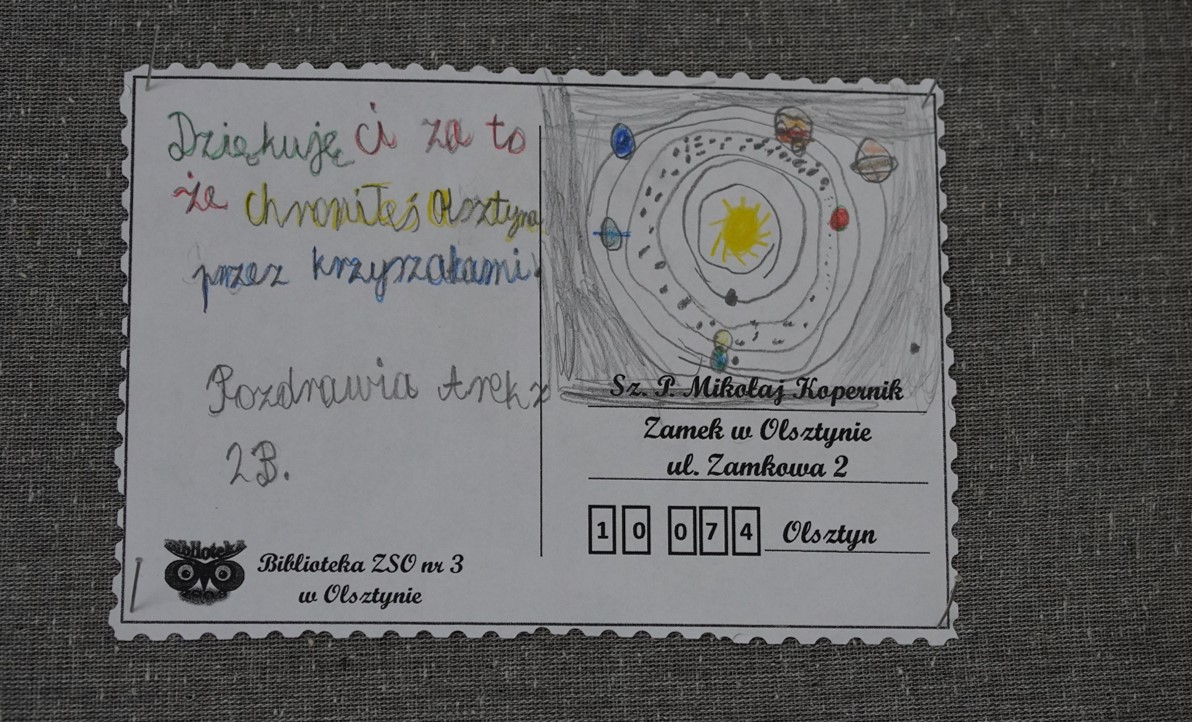 Dziękuję ci za to
że chroniłeś Olsztyna
przez krzyrzakami.
Pozdrawia Arek z
2B.
Biblioteka
Biblioteka ZSO nr 3
w Olsztynie
Sz. P. Mikołaj Kopernik
Zamek w Olsztynie
ul. Zamkowa 2
10 074 Olsztyn